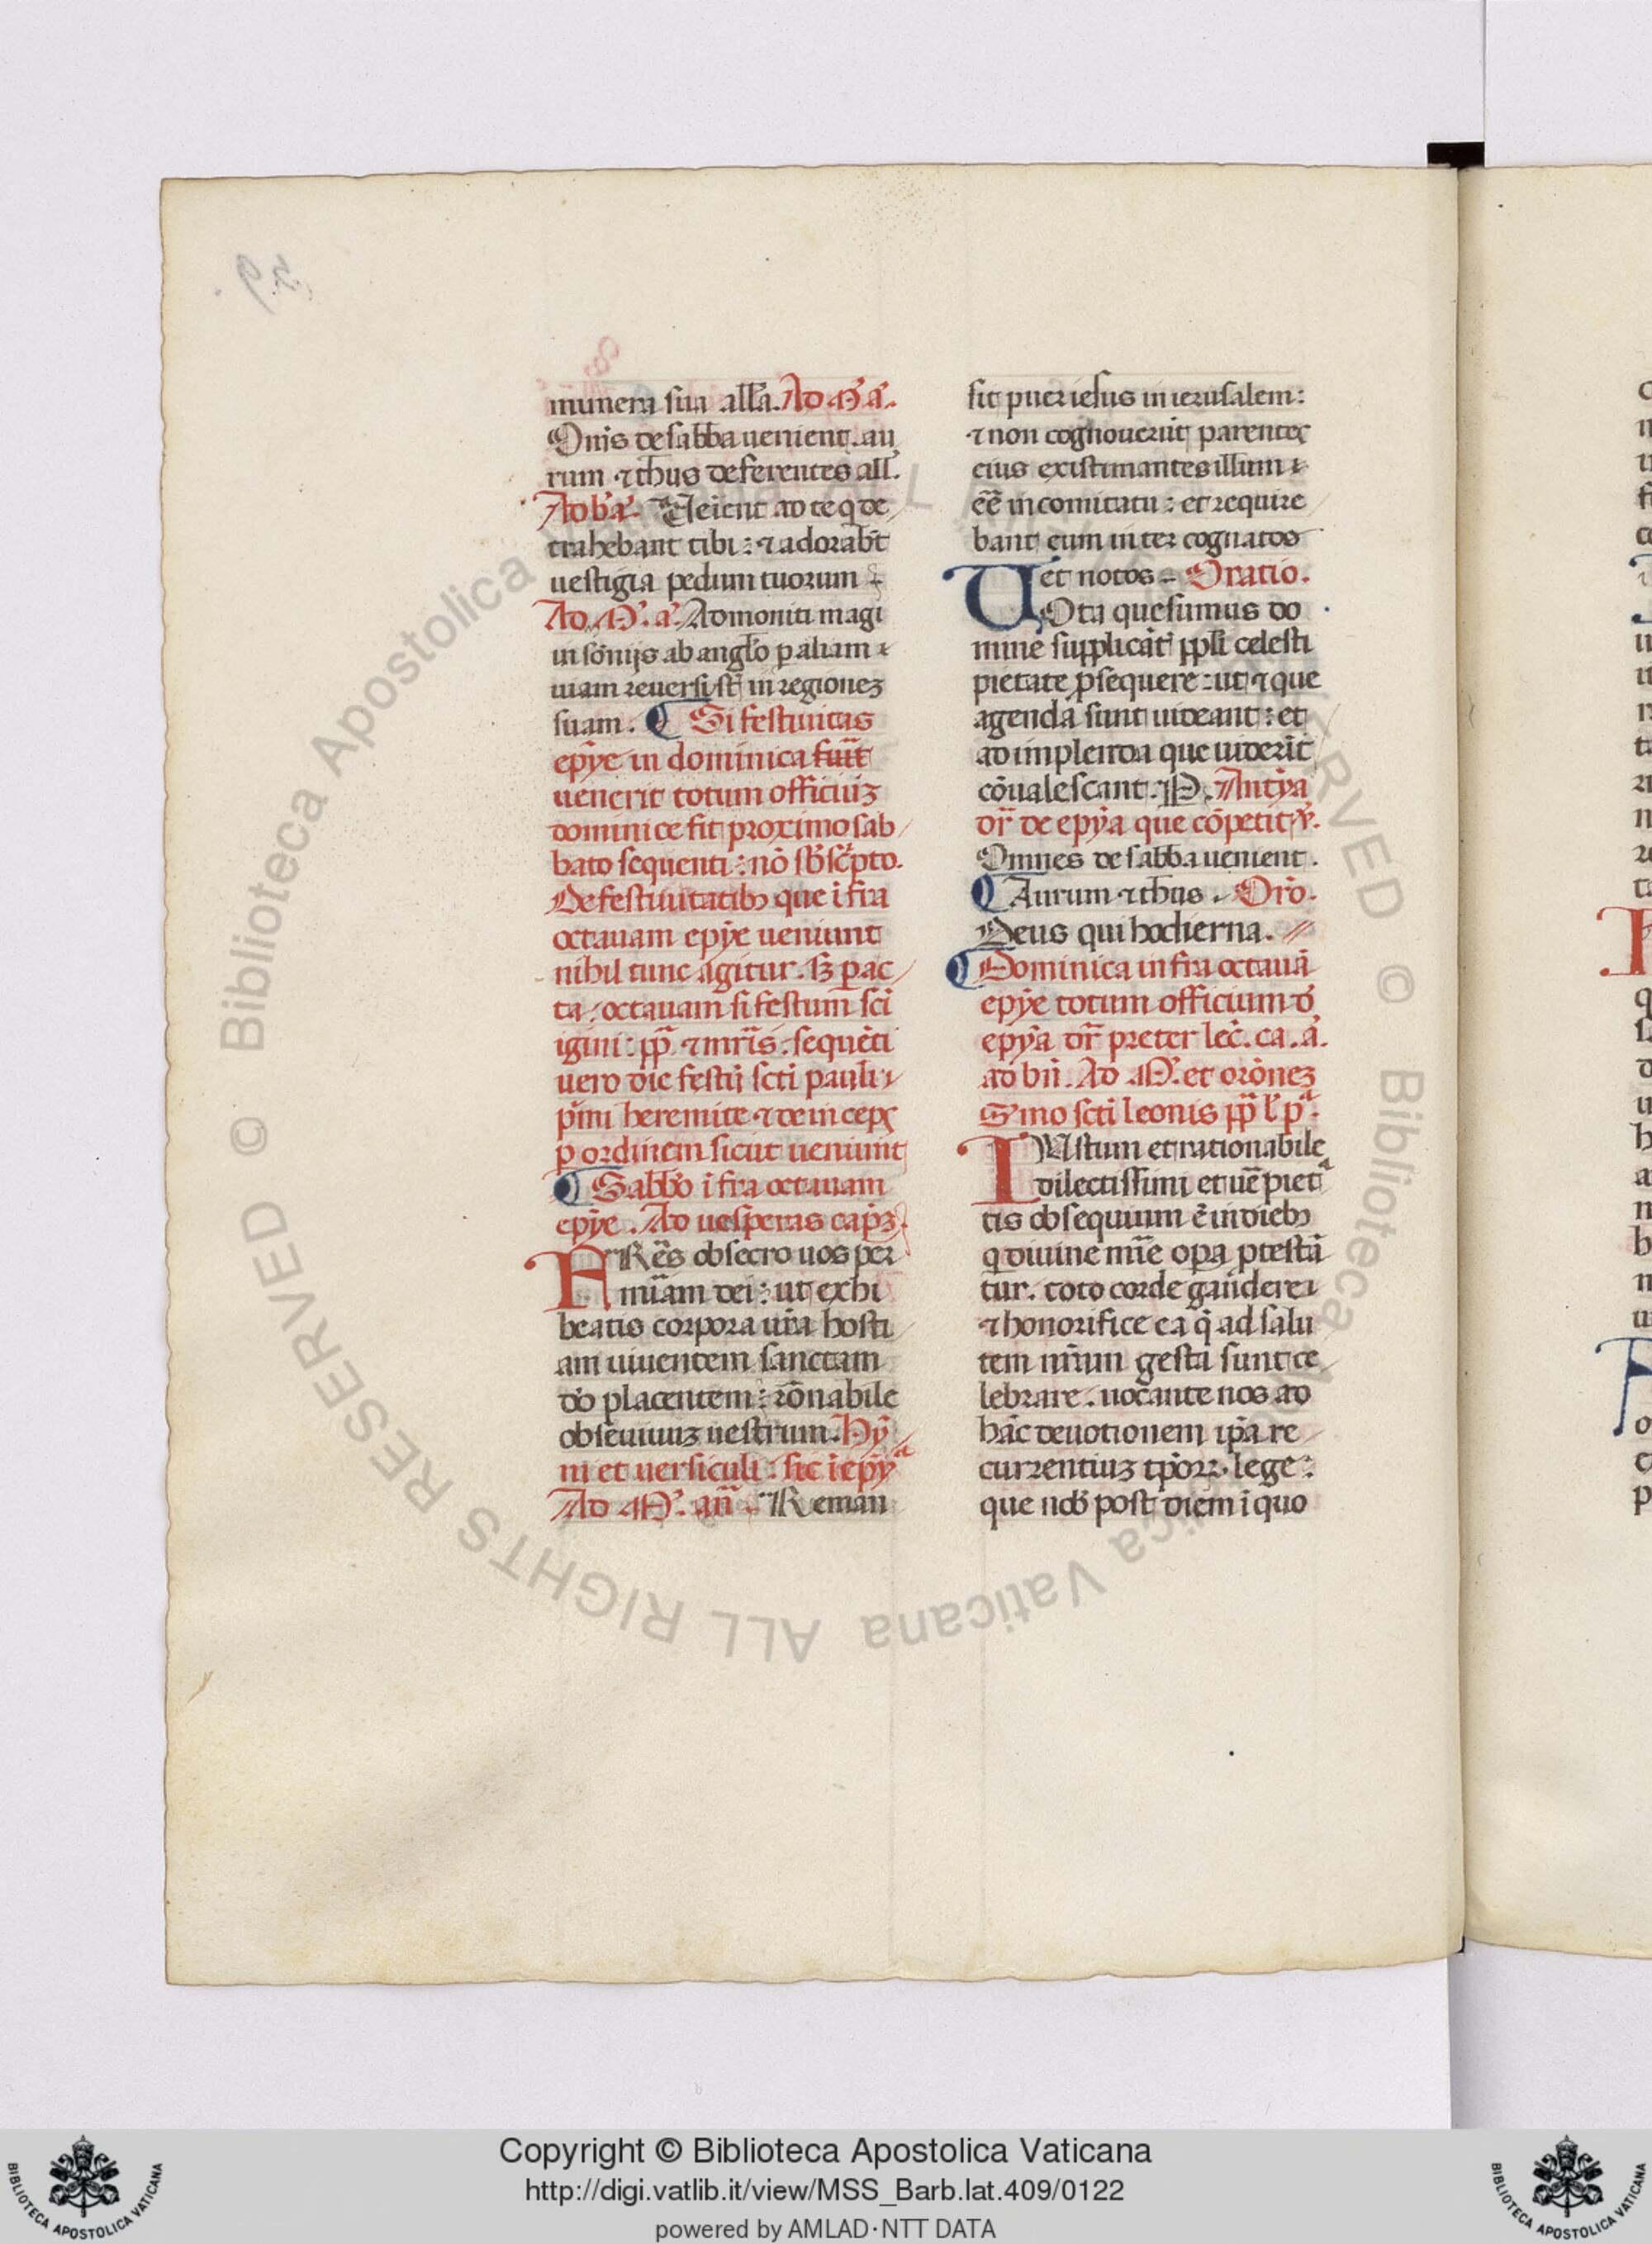 munera sua alla. Ad M̃ a.
Om̃s de sabba uenient. au
rum ⁊ thus deferentes all.
Ad b̃ a. Ueient ad te q̃ de
trahebant tibi: ⁊ adorabt̃
uestigia pedum tuorum
Ad M̃. a. Admoniti magi
in sõnijs ab angło ꝑ aliam
uiam reuersi st̃ in regioneʒ
suam. ¶ Si festiuitas
epỹe in dominica fuit
uenerit totum officiuʒ
dominice fit proximo sab
bato sequenti: nõ sb̃scp̃to.
De festiuitatibꝰ que ĩfra
octauam epỹe ueniunt
nihil tunc agitur. sʒ ꝑ ac
ta octauam si festum sc̃i
igini: pp̃ ⁊ mr̃is: sequẽti
uero die festũ sc̃ti pauli
p̃mi heremite ⁊ deinceps
ꝑ ordinem sicut ueniunt
¶ Sabb̃o ĩfra octauam
epỹe. Ad uesperas cap̃ʒ.
FRẽs obsecro uos per
mĩam dei: ut exhi
beatis corpora ur̃a hosti
am uiuentem sanctam
dõ placentem: rõnabile
obseuiuʒ uestrum. Hỹ
ni et uersiculi: sic ĩ epỹa
Ad M̃. añ. Reman
sit puer iesus in ierusalem:
⁊ non cognouerũt parentes
eius existimantes illum
eẽ in comitatu: et require
bant eum inter cognatos
et notos. Oratio.
UOta quesumus do
mine supplicãt̃ pp̃li celesti
pietate ꝓsequere: ut ⁊ que
agenda sunt uideant: et
ad implenda que uiderĩt
cõualescant. P. Antỹa
dr̃ de epỹa que cõpetit ℣.
Omnes de sabba uenient.
¶ Aurum ⁊ thus. Orõ.
Deus qui hodierna.
¶ Dominica infra octauã
epỹe totum officium d̃
epỹa dr̃ preter lec̃. ca. a.
ad bñ. Ad M̃. et orõneʒ
Smo sc̃ti leonis pp̃ l̃ p̃a.
IUstum et rationabile
dilectissimi et uẽ pieta
tis obsequium ẽ in diebꝰ
q̃ diuine mĩe opa p̃testã
tur. toto corde gaudere
⁊ honorifice ea q̃ ad salu
tem nr̃am gesta sunt ce
lebrare. uocante nos ad
hãc deuotionem ip̃a re
currentiuʒ tp̃oꝝ. lege:
que nob̃ post diem ĩ quo
Copyright © Biblioteca Apostolica Vaticana
http://digi.vatlib.it/view/MSS_Barb.lat.409/0122
powered by AMLAD·NTT DATA